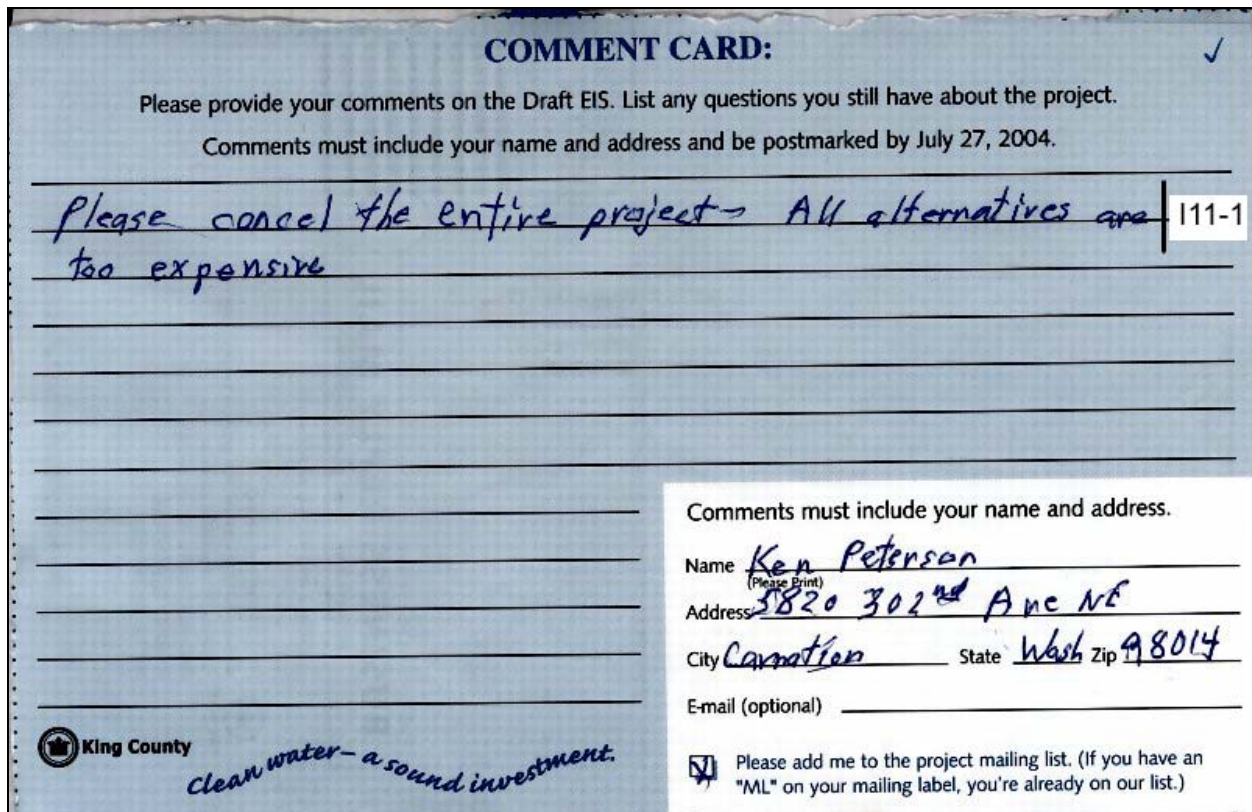 COMMENT CARD:
Please provide your comments on the Draft EIS. List any questions you still have about the project.
Comments must include your name and address and be postmarked by July 27, 2004.
Please cancel the entire project - All alternatives are
I11-1
too expensive
Comments must include your name and address.
Name Ken Peterson
(Please Print)
Address 5820 302nd Ave NE
City Carnation State Wash Zip 98014
E-mail (optional)
King County
Clean water – a sound investment.
Please add me to the project mailing list. (If you have an
"ML" on your mailing label, you're already on our list.)